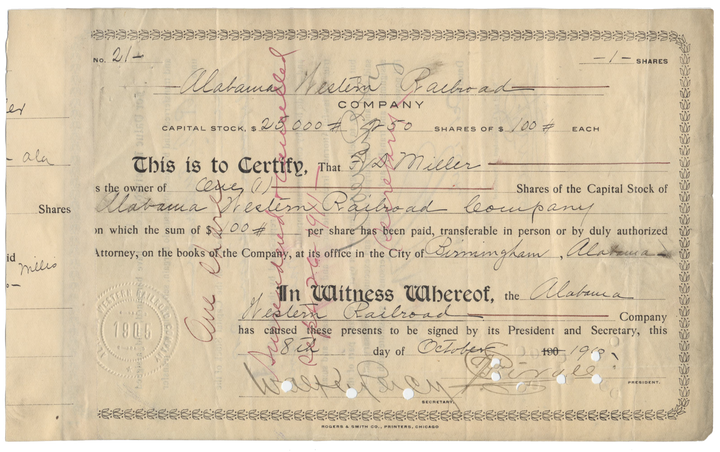 No. 21
-1- SHARES
Alabama Western Railroad
COMPANY
CAPITAL STOCK, $ 25,000 # 250 SHARES OF $ 100 # EACH
This is to Certify, That Miller
is the owner of One (1) Shares of the Capital Stock of
Alabama Western Railroad Company
on which the sum of $ 100 # per share has been paid, transferable in person or by duly authorized
Attorney, on the books of the Company, at its office in the City of Birmingham, Alabama
In Witness Whereof, the Alabama
Western Railroad Company
has caused these presents to be signed by its President and Secretary, this
8th day of October 190 1910
Walker Percy
PRESIDENT.
SECRETARY.
ROGERS & SMITH CO., PRINTERS, CHICAGO
Ala
Shares
Millis
WESTERN RAILROAD
1906
One Share
Surrendered & cancelled
Secretary